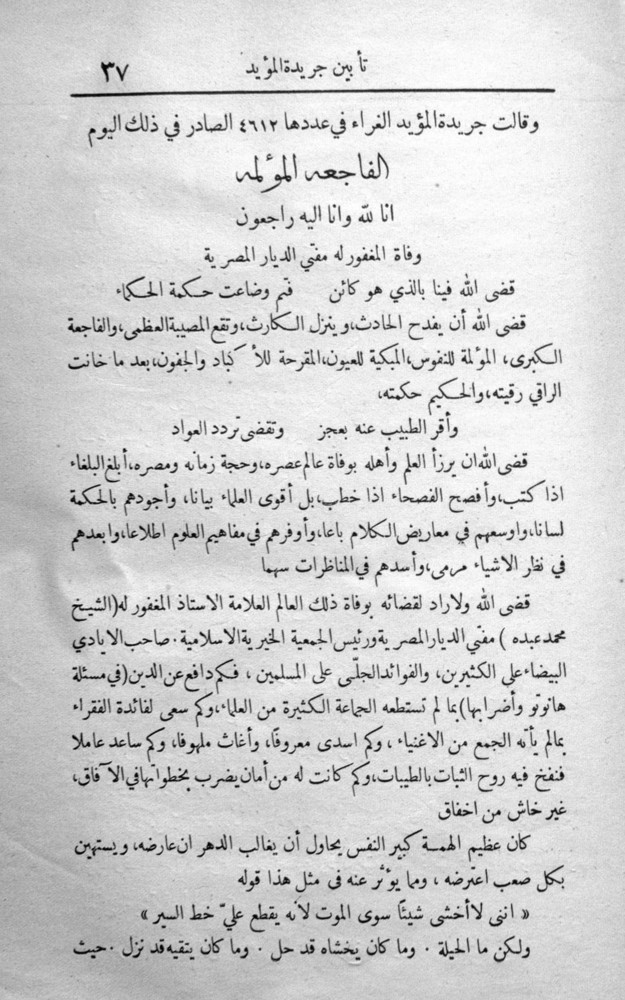 تأبين جريدة المؤيد ٣٧
وقالت جريدة المؤيد الغراء في عددها ٤٦١٢ الصادر في ذلك اليوم
الفاجعه المؤلمه
انا لله وانا اليه راجعون
وفاة المغفور له مفتي الديار المصرية
قضى الله فينا بالذي هو كائن فتم وضاعت حكمة الحكماء
قضى الله أن يفدح الحادث، وينزل الكارث، وتقع المصيبة العظمى، والفاجعة
الكبرى، المؤلمة للنفوس، المبكية للعيون، المقرحة للأكباد والجفون، بعد ما خانت
الراقي رقيته، والحكيم حكمته،
وأقر الطبيب عنه بعجز وتقضى تردد العواد
قضى الله ان يرزأ العلم وأهله بوفاة عالم عصره، وحجة زمانه ومصره، أبلغ البلغاء
اذا كتب، وأفصح الفصحاء اذا خطب، بل أقوى العلماء بيانا، وأجودهم بالحكمة
لسانا، واوسعهم في معاريض الكلام باعا، وأوفرهم في مفاهيم العلوم اطلاعا، وابعدهم
في نظر الاشياء مرمى، وأسدهم في المناظرات سهما
قضى الله ولاراد لقضائه بوفاة ذلك العالم العلامة الاستاذ المغفور له (الشيخ
محمد عبده ) مفتي الديار المصرية ورئيس الجمعية الخيرية الاسلامية . صاحب الايادي
البيضاء على الكثيرين، والفوائد الجلى على المسلمين ، فكم دافع عن الدين (في مسئلة
هانوتو وأضرابها) بما لم تستطعه الجماعة الكثيرة من العلماء، وكم سعى لفائدة الفقراء
بمالم يأته الجمع من الاغنياء ، وكم اسدى معروفًا، وأغاث ملهوفا، وكم ساعد عاملا
فنفخ فيه روح الثبات بالطيبات، وكم كانت له من أمان يضرب بخطواتها في الآفاق،
غير خاش من اخفاق
كان عظيم الهمة كبير النفس يحاول أن يغالب الدهر ان عارضه، ويستهين
بكل صعب اعترضه ، ومما يؤثر عنه في مثل هذا قوله
« انني لا أخشى شيئًا سوى الموت لأنه يقطع عليّ خط السير »
ولكن ما الحيلة . وما كان يخشاه قد حل . وما كان يتقيه قد نزل . حيث